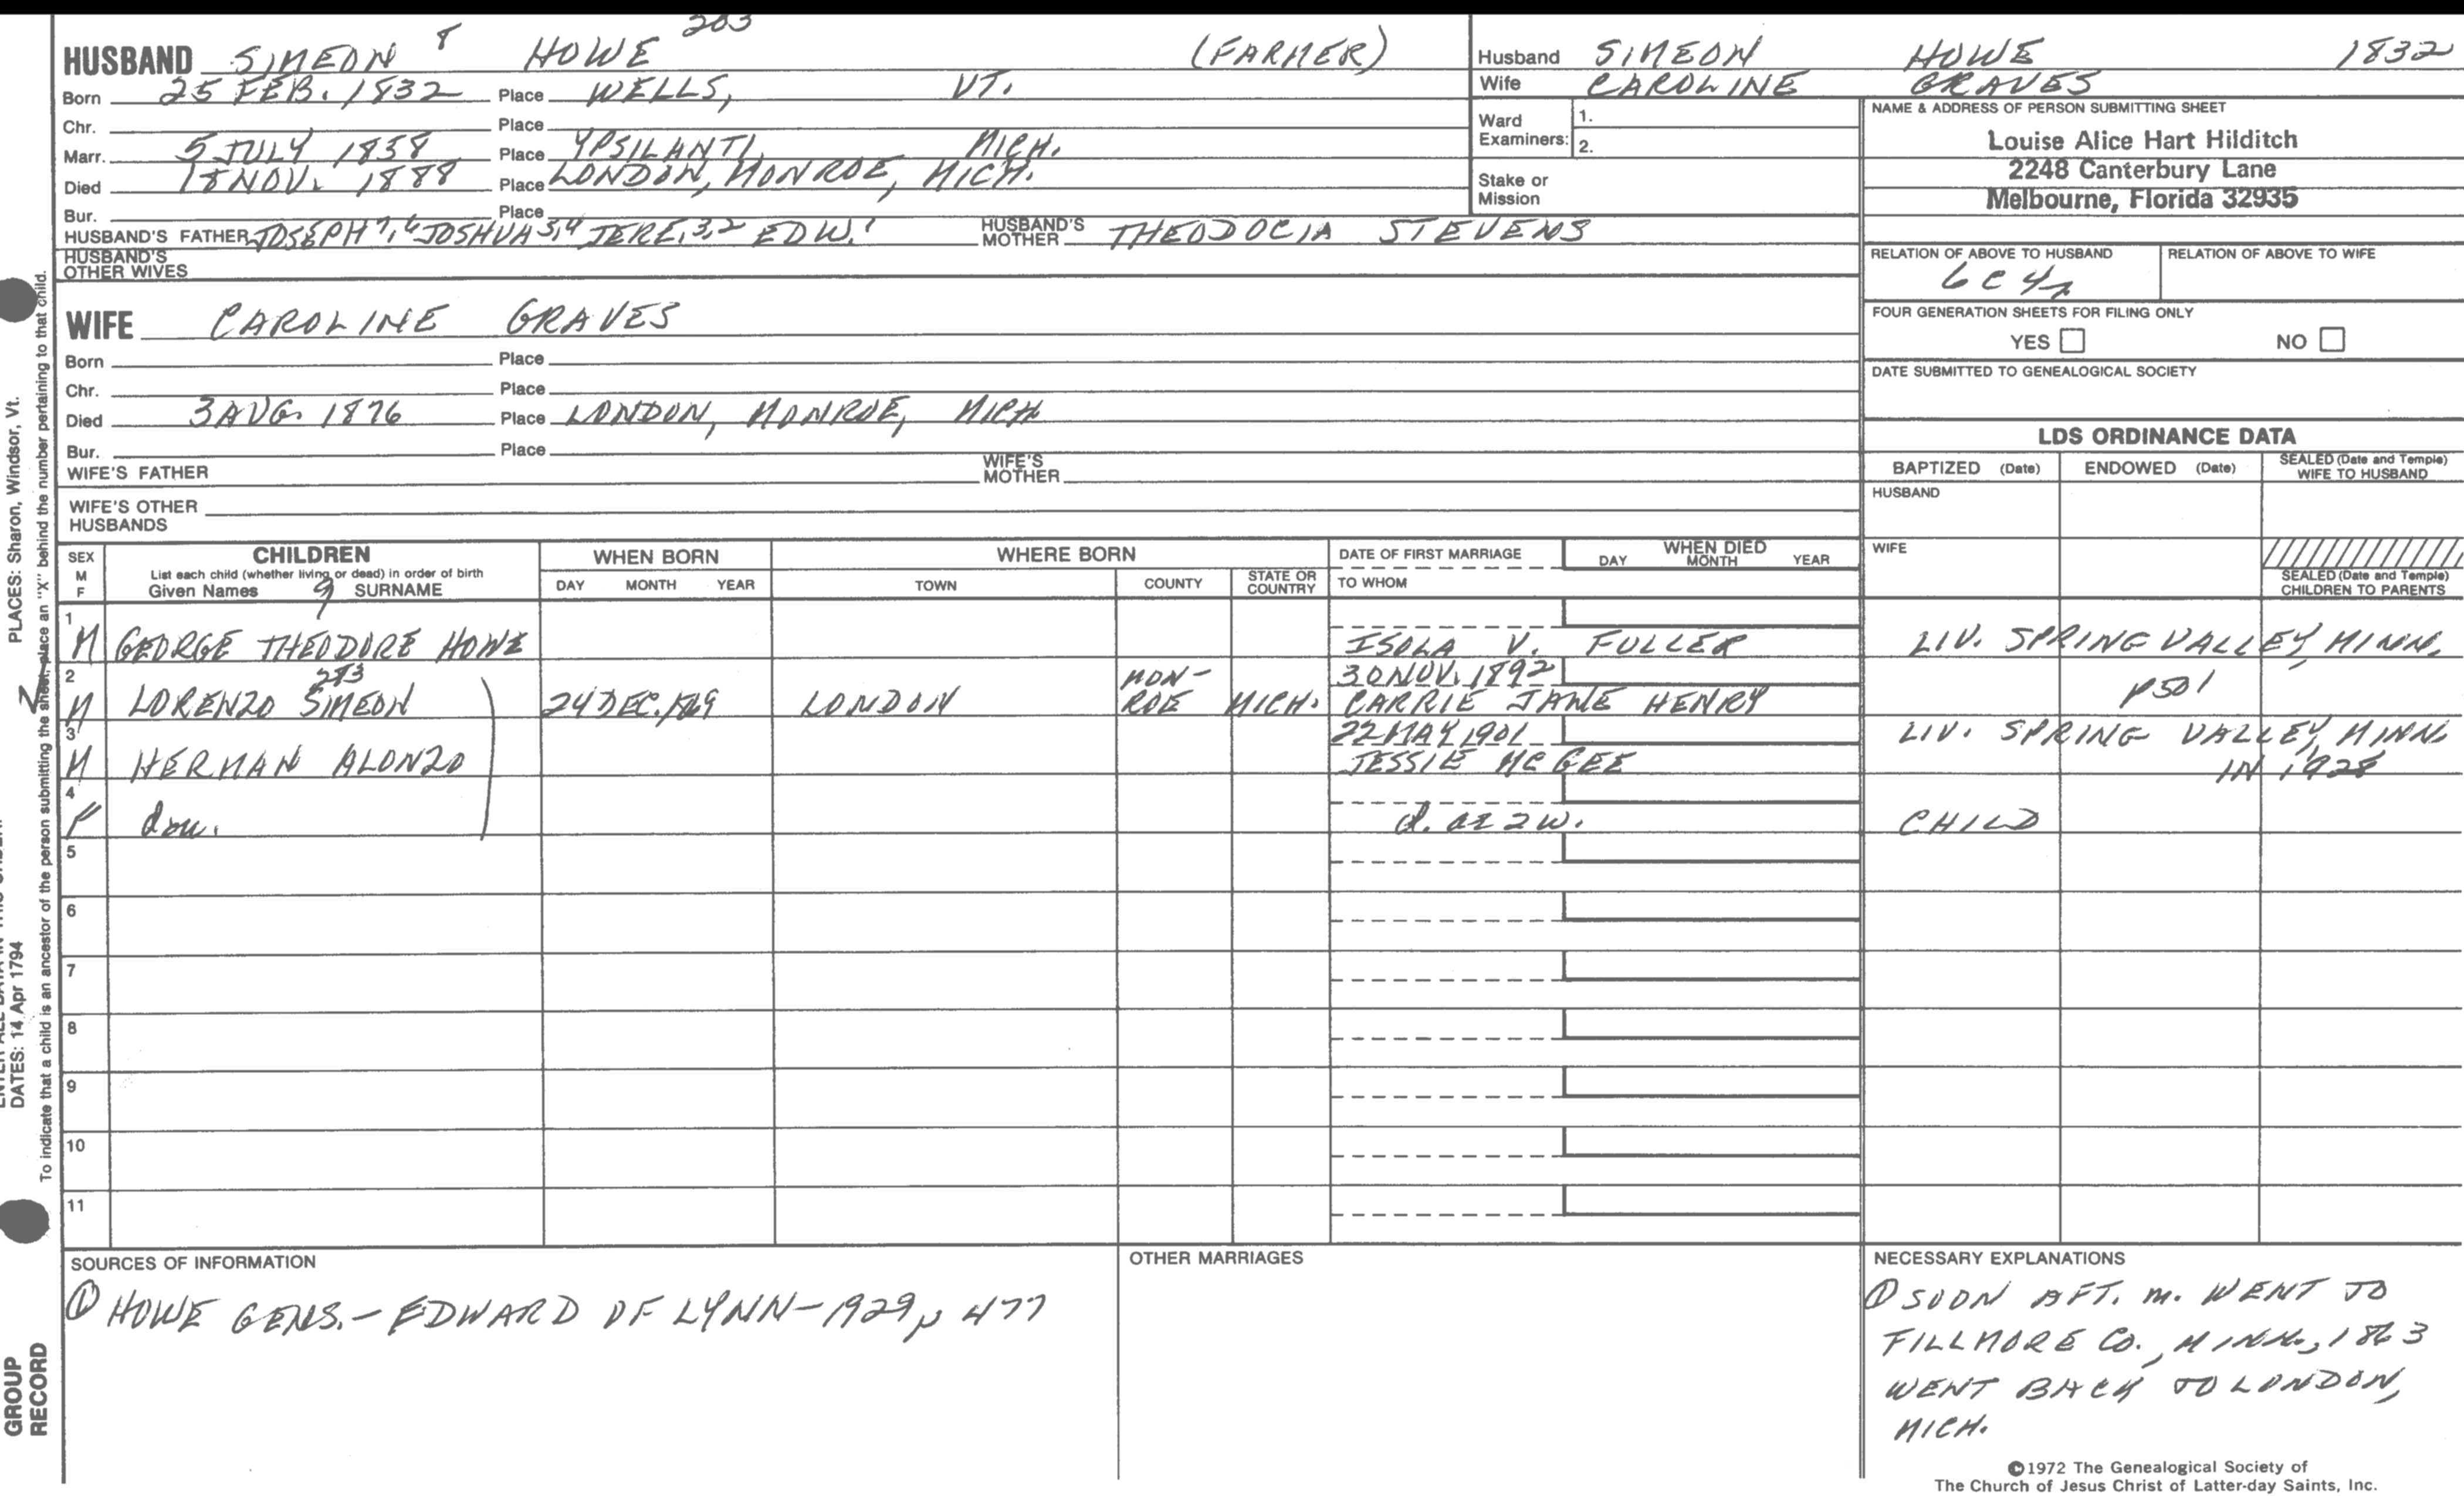 203
HUSBAND SIMEON 8 HOWE (FARMER)
Born 25 FEB. 1832 Place WELLS, VT.
Chr. Place
Marr. 5 JULY 1858 Place YPSILANTI, MICH.
Died 18 NOV. 1888 Place LONDON, MONROE, MICH.
Bur. Place
HUSBAND'S FATHER JOSEPH 7,6 JOSHUA 5,4 JERE. 3,2 EDW. 1 HUSBAND'S MOTHER THEODOCIA STEVENS
HUSBAND'S OTHER WIVES
Husband SIMEON HOWE 1832
Wife CAROLINE GRAVES
Ward Examiners: 1.
2.
Stake or Mission
NAME & ADDRESS OF PERSON SUBMITTING SHEET
Louise Alice Hart Hilditch
2248 Canterbury Lane
Melbourne, Florida 32935
RELATION OF ABOVE TO HUSBAND RELATION OF ABOVE TO WIFE
6C4r
FOUR GENERATION SHEETS FOR FILING ONLY
YES NO
DATE SUBMITTED TO GENEALOGICAL SOCIETY
WIFE CAROLINE GRAVES
Born Place
Chr. Place
Died 3 AUG. 1876 Place LONDON, MONROE, MICH
Bur. Place
WIFE'S FATHER WIFE'S MOTHER
WIFE'S OTHER HUSBANDS
LDS ORDINANCE DATA
BAPTIZED (Date) ENDOWED (Date) SEALED (Date and Temple) WIFE TO HUSBAND
HUSBAND
WIFE
SEALED (Date and Temple) CHILDREN TO PARENTS
SEX M F
CHILDREN
List each child (whether living or dead) in order of birth
Given Names 9 SURNAME
WHEN BORN
DAY MONTH YEAR
WHERE BORN
TOWN COUNTY STATE OR COUNTRY
DATE OF FIRST MARRIAGE
TO WHOM
WHEN DIED
DAY MONTH YEAR
1
M GEORGE THEODORE HOWE ISOLA V. FULLER LIV. SPRING VALLEY, MINN.
2 283 MON- 30 NOV. 1892
M LORENZO SIMEON 24 DEC. 1869 LONDON ROE MICH. CARRIE JANE HENRY p501
3 22 MAY 1901 LIV. SPRING VALLEY, MINN
M HERMAN ALONZO JESSIE McGEE IN 1928
4
F dau. d. at 2 w. CHILD
5
6
7
8
9
10
11
SOURCES OF INFORMATION
① HOWE GENS. - EDWARD OF LYNN - 1929, p 477
OTHER MARRIAGES
NECESSARY EXPLANATIONS
① SOON AFT. m. WENT TO
FILLMORE CO., MINN., 1863
WENT BACK TO LONDON,
MICH.
©1972 The Genealogical Society of
The Church of Jesus Christ of Latter-day Saints, Inc.
PLACES: Sharon, Windsor, Vt.
DATES: 14 Apr 1794
To indicate that a child is an ancestor of the person submitting the sheet, place an "X" behind the number pertaining to that child.
GROUP
RECORD